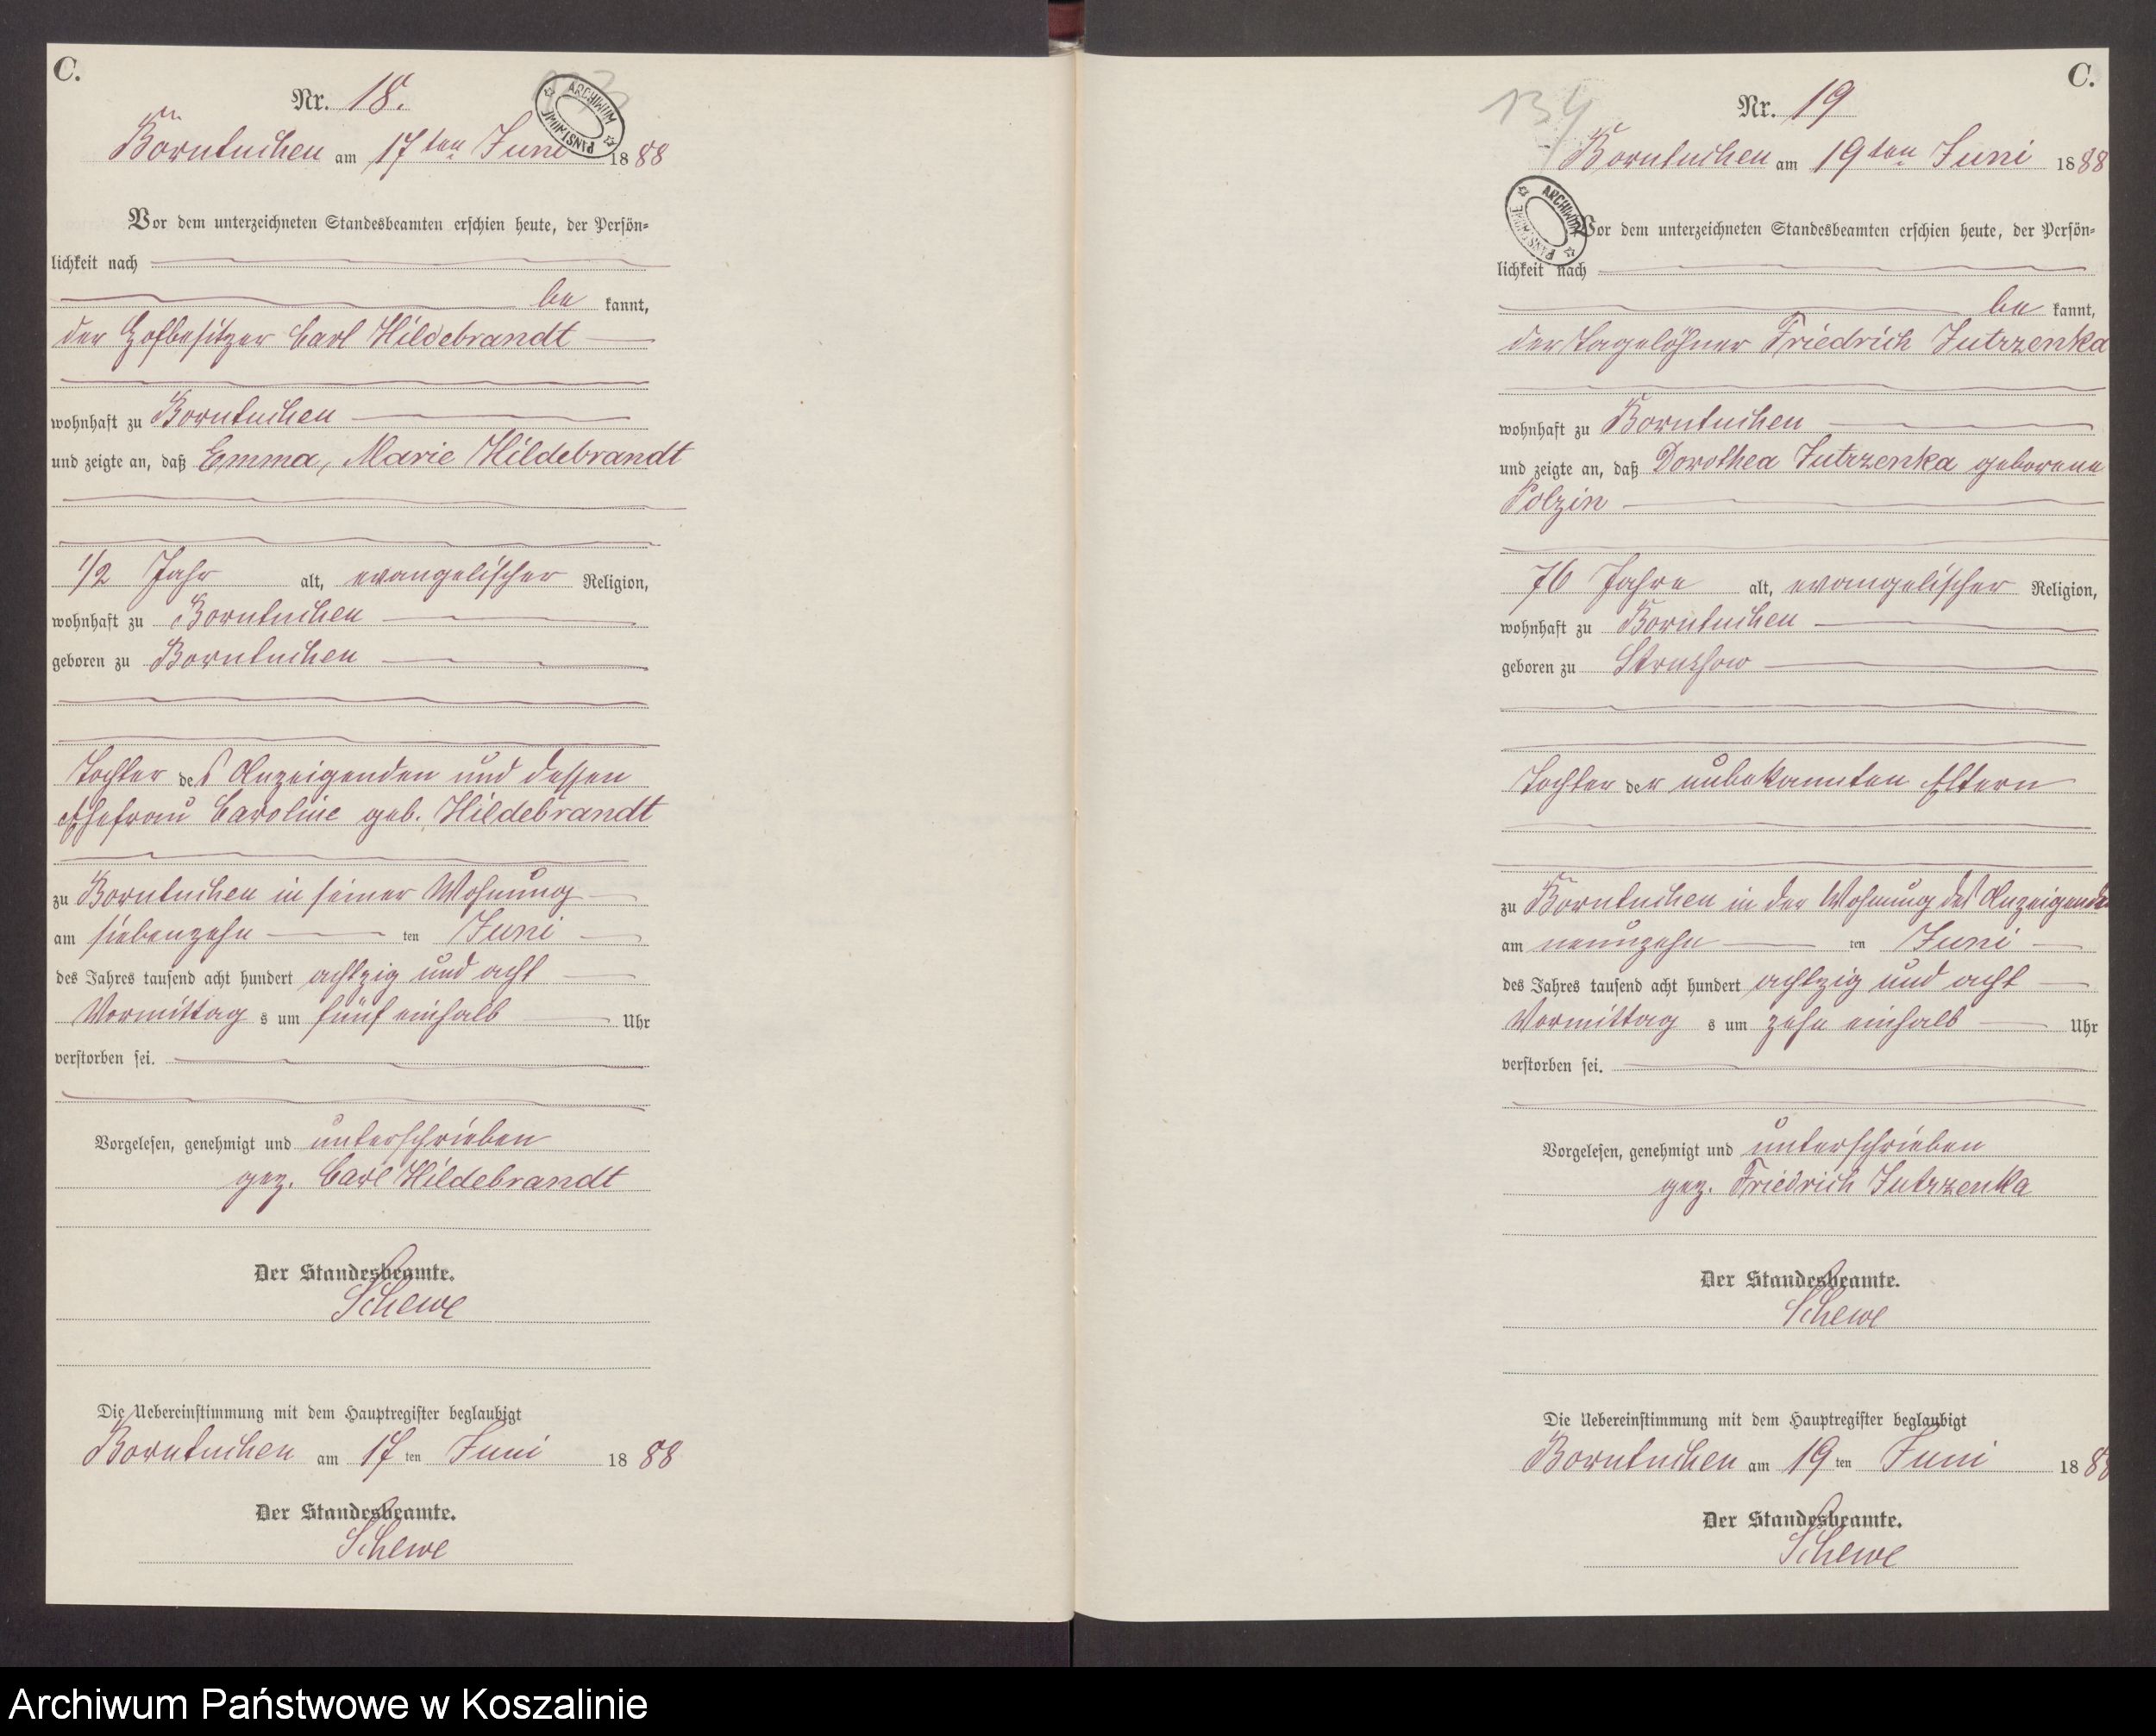 C.
Nr. 18.
ARCHIWUM PAŃSTWOWE
Borntuchen am 17ten Juni 1888
Vor dem unterzeichneten Standesbeamten erschien heute, der Persön-
lichkeit nach
be kannt,
der Hofbesitzer Carl Hildebrandt
wohnhaft zu Borntuchen
und zeigte an, daß Emma, Marie Hildebrandt
1/2 Jahr alt, evangelischer Religion,
wohnhaft zu Borntuchen
geboren zu Borntuchen
Tochter des Anzeigenden und dessen
Ehefrau Caroline geb. Hildebrandt
zu Borntuchen in seiner Wohnung
am siebenzehn ten Juni
des Jahres tausend acht hundert achtzig und acht
Vormittag s um fünf einhalb Uhr
verstorben sei.
Vorgelesen, genehmigt und unterschrieben
gez. Carl Hildebrandt
Der Standesbeamte.
Schewe
Die Uebereinstimmung mit dem Hauptregister beglaubigt
Borntuchen am 17 ten Juni 1888
Der Standesbeamte.
Schewe
C.
134
Nr. 19
Borntuchen am 19ten Juni 1888
ARCHIWUM PAŃSTWOWE
Vor dem unterzeichneten Standesbeamten erschien heute, der Persön-
lichkeit nach
be kannt,
der Tagelöhner Friedrich Jutrzenka
wohnhaft zu Borntuchen
und zeigte an, daß Dorothea Jutrzenka geborene
Polzin
76 Jahre alt, evangelischer Religion,
wohnhaft zu Borntuchen
geboren zu
Tochter der unbekannten Eltern
zu Borntuchen in der Wohnung des Anzeigenden
am neunzehn ten Juni
des Jahres tausend acht hundert achtzig und acht
Vormittag s um zehn einhalb Uhr
verstorben sei.
Vorgelesen, genehmigt und unterschrieben
gez. Friedrich Jutrzenka
Der Standesbeamte.
Schewe
Die Uebereinstimmung mit dem Hauptregister beglaubigt
Borntuchen am 19 ten Juni 1888
Der Standesbeamte.
Schewe
Archiwum Państwowe w Koszalinie